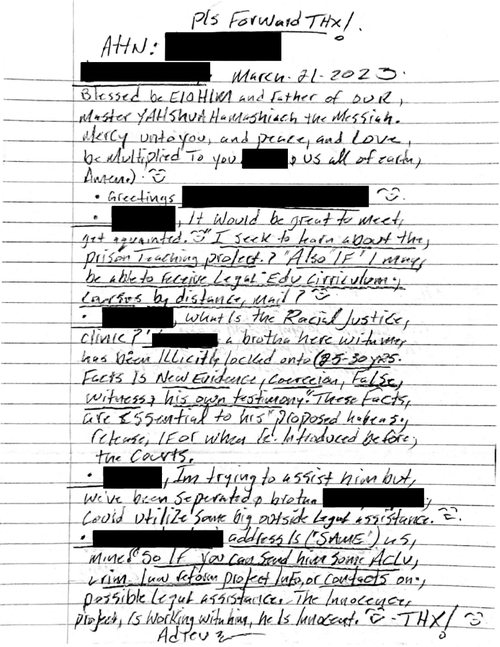 pls Forward THX!
ATTN:
March-21-2023.
Blessed be ElOHIM and Father of OUR,
Master YAHShUA Hamashiach the Messiah.
Mercy unto you, and peace, and Love,
be Multiplied To you , us all of earth,
Amen.)
• Greetings
• , It would be great to meet,
get aquainted. "I seek to learn about the,
prison teaching project.? "Also "IF" I may,
be able to receive Legal Edu Cirriculum,
Courses by distance, mail?
• , What Is the Racial Justice,
Clinic? a brotha here with me,
has been Illicitly locked onto
Facts Is New Evidence, Coerceion, False,
Witness, his own testimony. These Facts,
are Essential to his "proposed habeas,
release, IF or when Introduced before,
the Courts.
• , Im trying to assist him but,
we've been Separated, brotha
Could utilize Some big outside Legal assistance.
• address Is ("SAME") as,
mine. "So IF you can Send him Some Aclu,
crim. law reform project Info, or contacts on,
possible legal assistance. The Innocence,
project, is working with him, he Is Innocent. -THX!